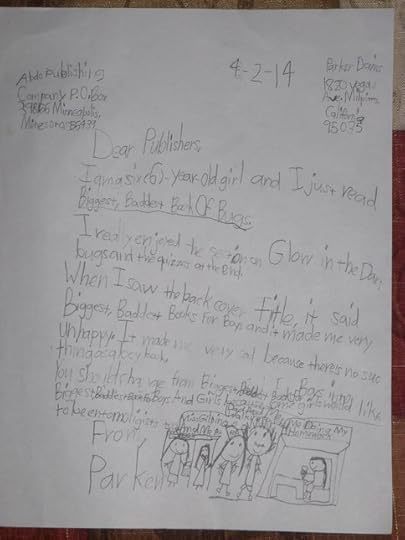 4-2-14
Abdo Publishing
Company P.O. Box
Minneapolis,
Parker Dains
1820
Ave. Milpitas
California
95035
Dear Publishers,
I am a six (6)-year-old girl and I just read
Biggest, Baddest Book Of Bugs.
I really enjoyed the section on Glow in the Dark
bugs and the quizzes at the end.
When I saw the back cover title, it said
Biggest, Baddest Books For Boys and it made me very
unhappy. It made me very sad because there's no such
thing as a boy book.
you should change from Biggest, Baddest Books For Boys into
Biggest, Baddest Books For Boys And Girls some girls would like
to be entomoligists too.
From,
Parker
Doing My
Homework